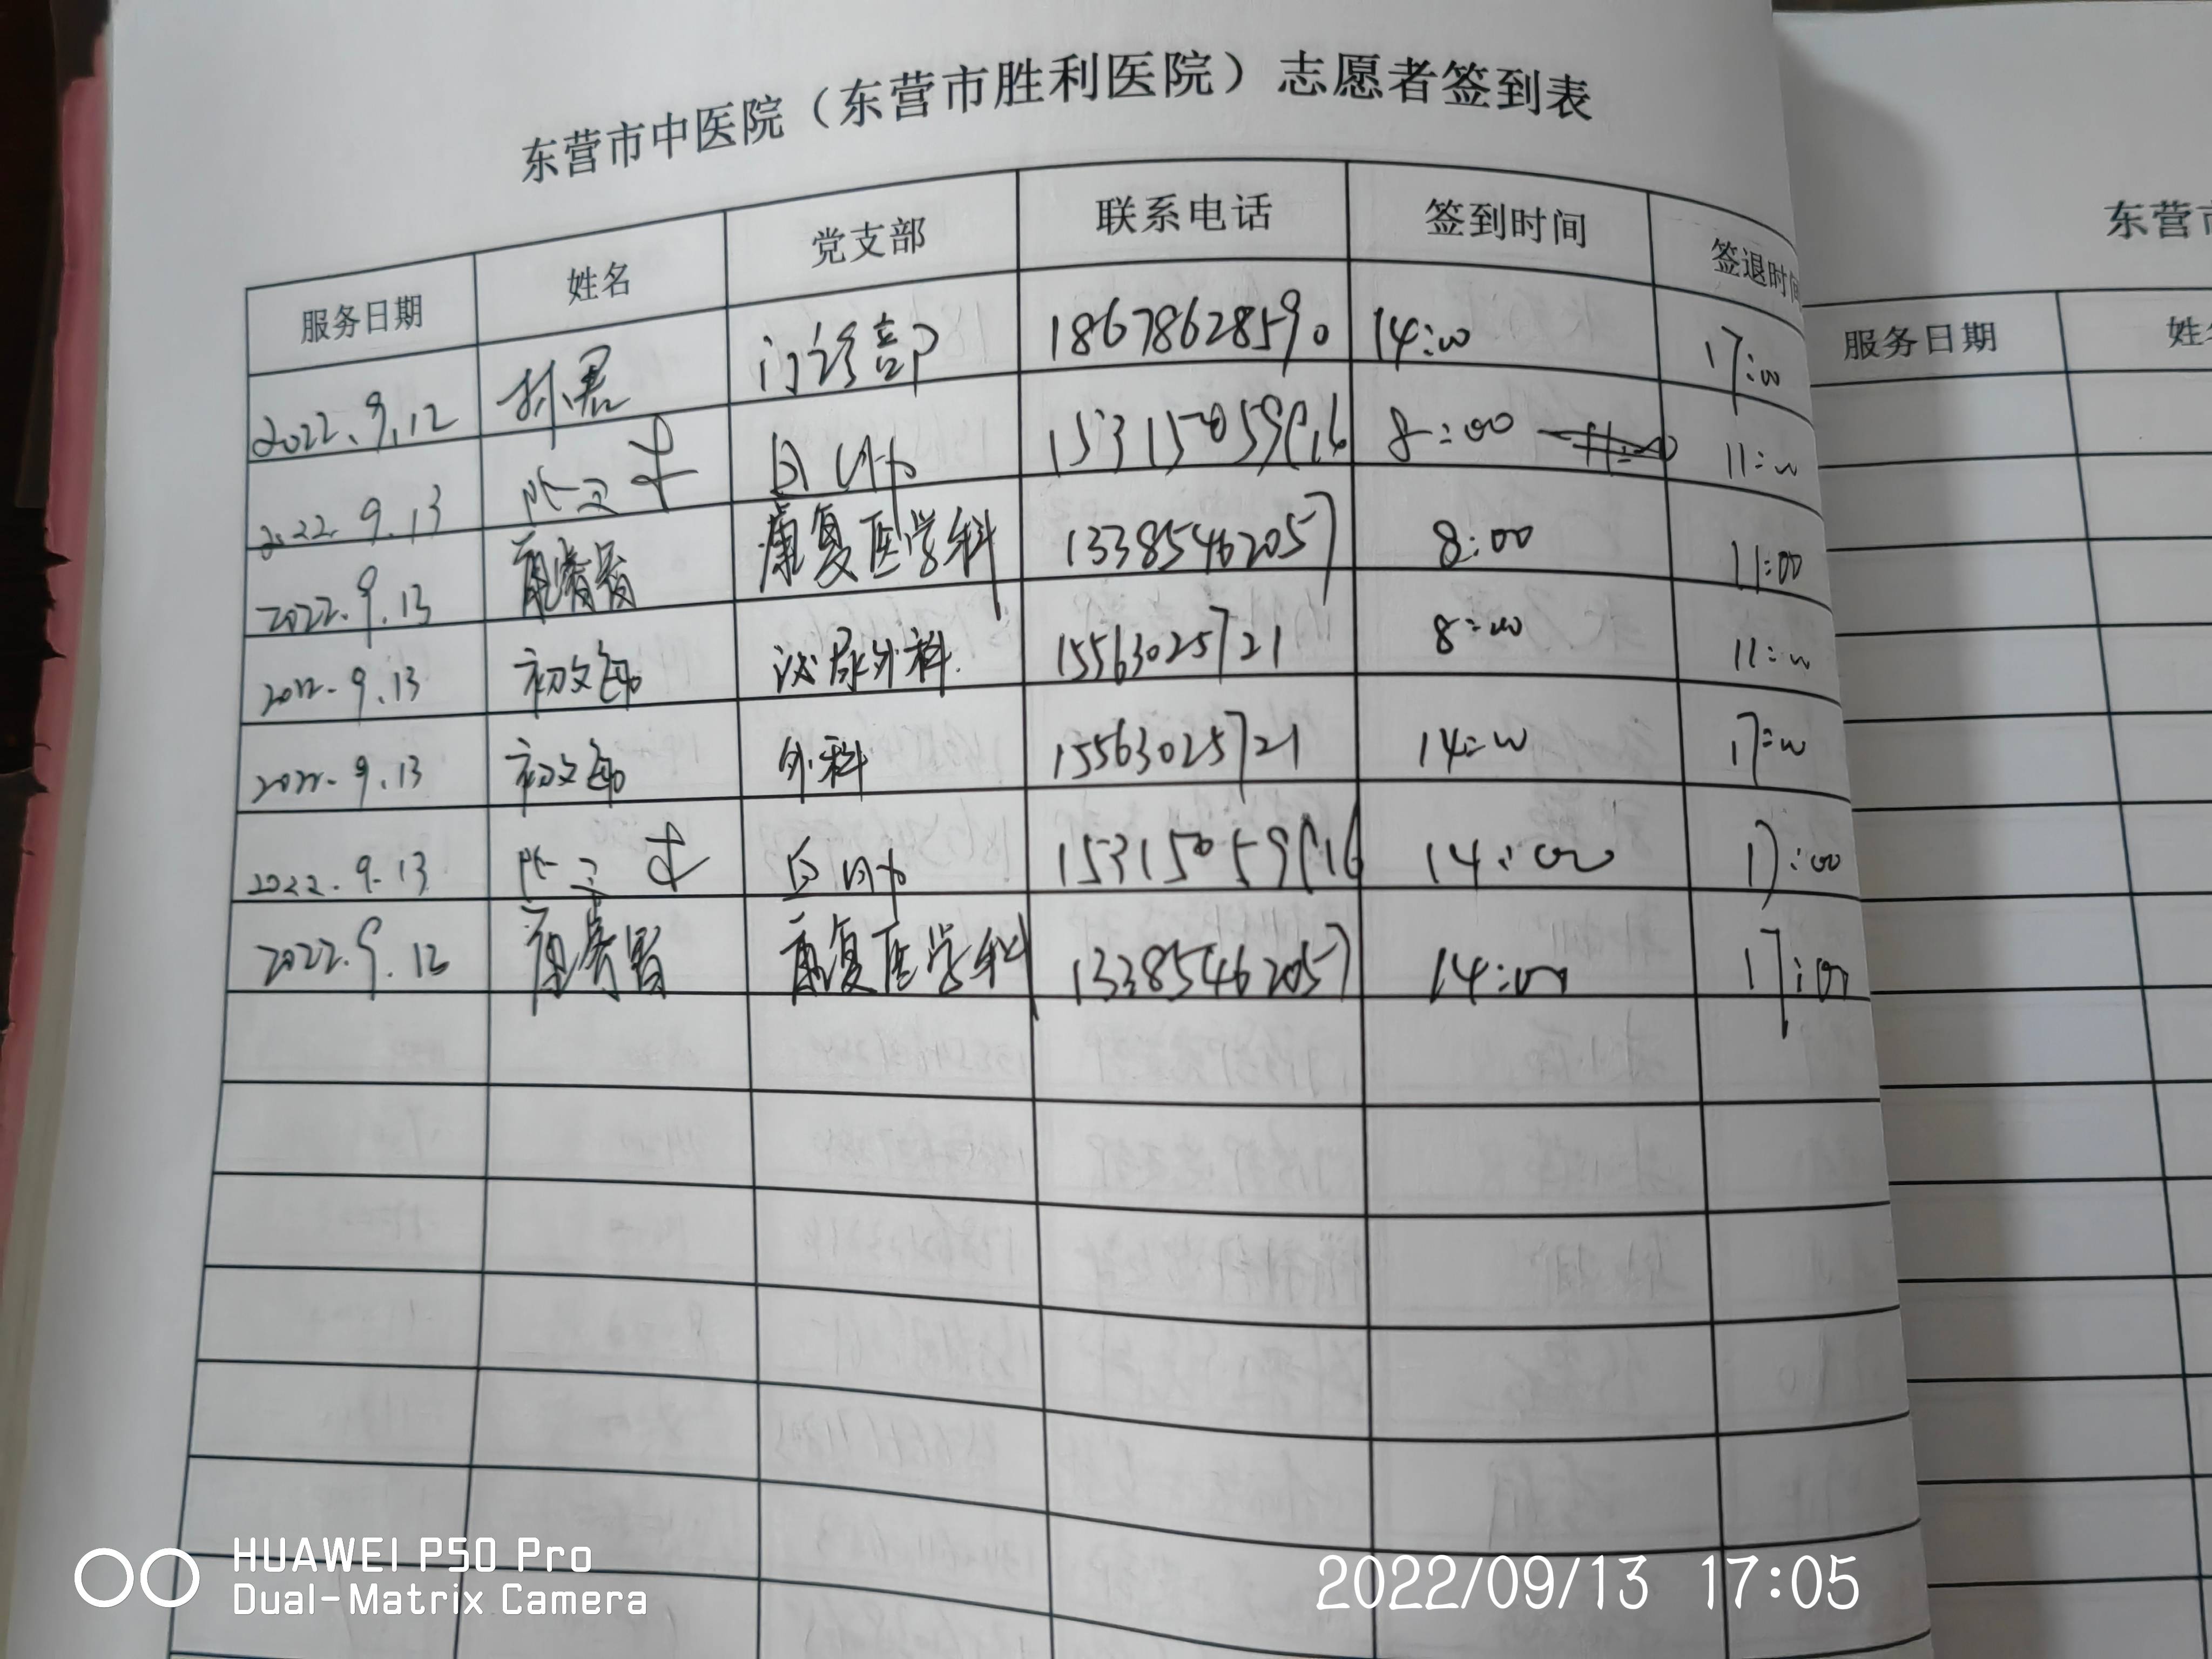 东营市中医院（东营市胜利医院）志愿者签到表
服务日期 姓名 党支部 联系电话 签到时间 签退时间
2022.9.12 门诊部 18678628590 14:00 17:00
2022.9.13 8:00 11:00
2022.9.13 康复医学科 13385462057 8:00 11:00
2022.9.13 初文 泌尿外科 15563025721 8:00 11:00
2022.9.13 初文 外科 15563025721 14:00 17:00
2022.9.13 14:00 17:00
2022.9.13 康复医学科 13385462057 14:00 17:00
东营市
服务日期 姓名
HUAWEI P50 Pro
Dual-Matrix Camera
2022/09/13 17:05